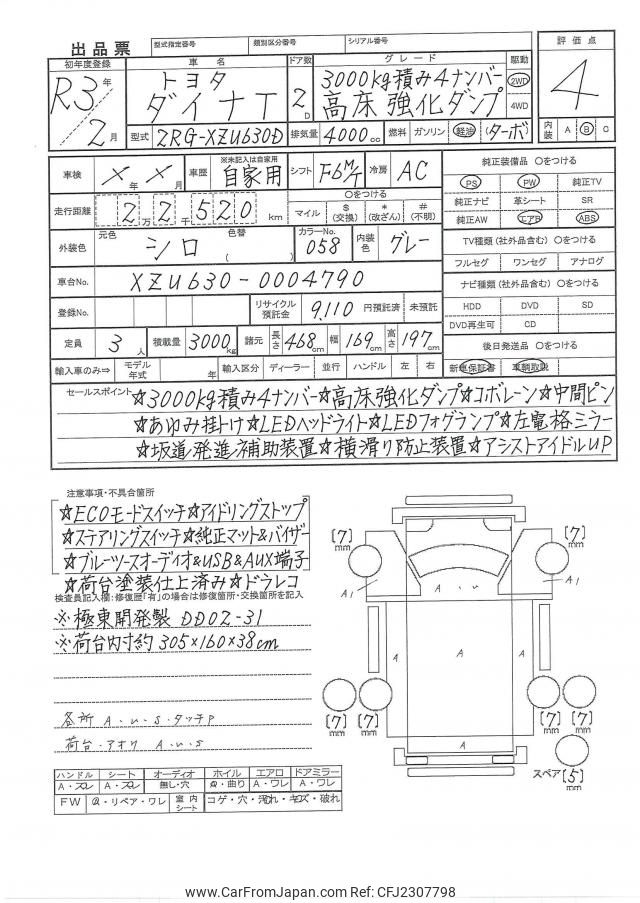 出品票
型式指定番号 類別区分番号 シリアル番号
初年度登録 車名 ドア数 グレード 駆動 評価点
R3年 トヨタ 2D 3000kg積み4ナンバー 2WD 4
2月 ダイナT 高床強化ダンプ 4WD
型式 2RG-XZU630D 排気量 4000cc 燃料 ガソリン 軽油 (ターボ) 内装 A B C
車検 X年X月 車歴 ※未記入は自家用 自家用 シフト F6M/T 冷房 AC
純正装備品 ○をつける
PS PW 純正TV
純正ナビ 革シート SR
純正AW エアB ABS
走行距離 2万2千520km
○をつける
マイル $(交換) *(改ざん) #(不明)
外装色 元色 シロ 色替 ( ) カラーNo. 058 内装色 グレー
TV種類(社外品含む) ○をつける
フルセグ ワンセグ アナログ
車台No. XZU630-0004790
ナビ種類(社外品含む) ○をつける
HDD DVD SD
DVD再生可 CD
登録No. リサイクル預託金 9,110 円預託済 未預託
定員 3人 積載量 3000kg 諸元 長さ 468cm 幅 169cm 高さ 197cm
後日発送品 ○をつける
新車保証書 車輌取説
輸入車のみ⇒ モデル年式 年 輸入区分 ディーラー 並行 ハンドル 左 右
セールスポイント
☆3000kg積み4ナンバー☆高床強化ダンプ☆コボレーン☆中間ピン
☆あゆみ掛け☆LEDヘッドライト☆LEDフォグランプ☆左電格ミラー
☆坂道発進補助装置☆横滑り防止装置☆アシストアイドルUP
注意事項・不具合箇所
☆ECOモードスイッチ☆アイドリングストップ
☆ステアリングスイッチ☆純正マット&バイザー
☆ブルーツースオーディオ&USB&AUX端子
☆荷台塗装仕上済み☆ドラレコ
検査員記入欄:修復歴「有」の場合は修復箇所・交換箇所を記入
※極東開発製 DD02-31
※荷台内寸約 305×160×38cm
各所 A.U.S.タッチP
荷台.アオリ A.U.S
[7]mm [7]mm
A1 A.U A1
A A A
[7]mm [7]mm [7]mm [7]mm
A
スペア [5]mm
ハンドル シート オーディオ ホイル エアロ ドアミラー
A・スレ A・スレ 無し・穴 A・曲り A・ワレ A・ワレ
FW A・リペア・ワレ 室内シート コゲ・穴・汚れ・キズ・破れ
www.CarFromJapan.com Ref: CFJ2307798